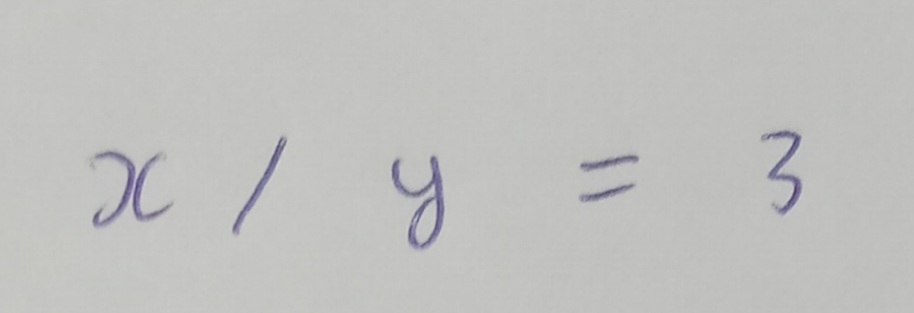 x / y = 3